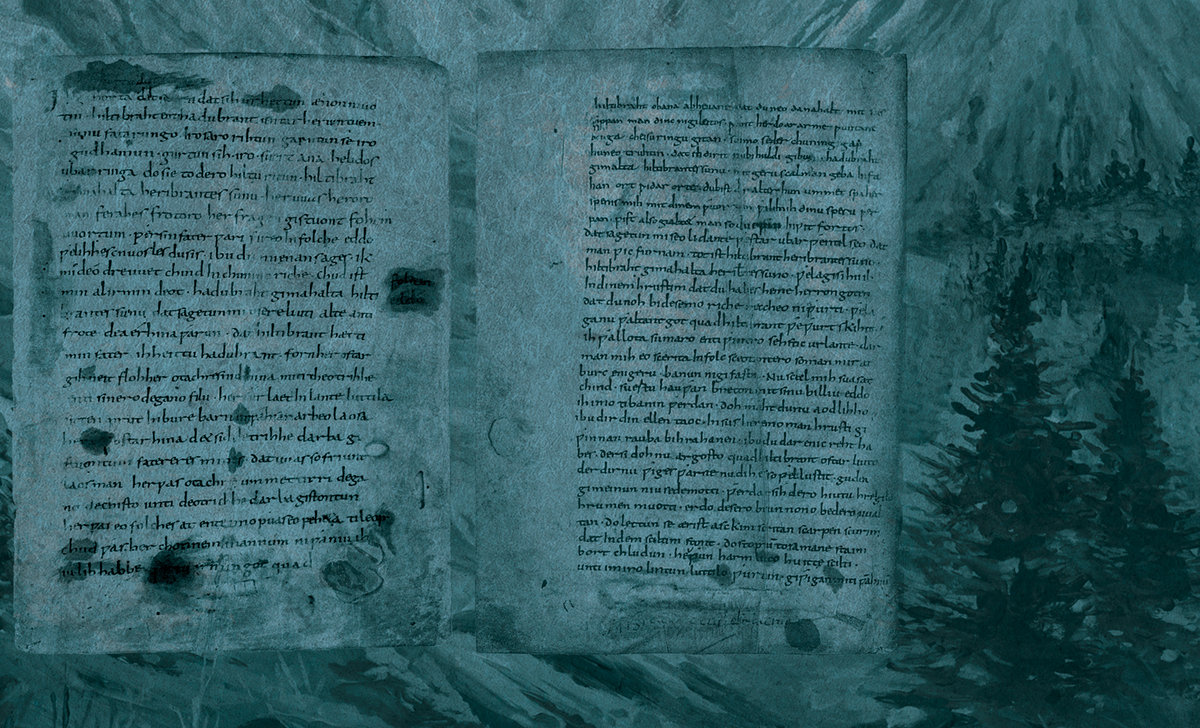 gihorta dat sih urhettun ænon muo
tin · hiltibraht enti hadubrant untar heriun tuem
sunu fatarungo · iro saro rihtun garutun se iro
gudhamun · gurtun sih · iro · suert ana · helidos
ubar ringa do sie to dero hiltu ritun · hiltibraht
gimahalta heribrantes sunu her uuas heroro
man ferahes frotoro her fragen gistuont fohem
uuortum · ƿer sin fater ƿari fireo In folche eddo
ƿelihhes cnuosles du sis · ibu du mi enan sages · ik
mideo dre uuet chind In chunincriche · chud ist
min al irmin deot · hadubraht gimahalta hilti
brantes sunu dat sagetun mi usere liuti alte anti
frote dea erhina ƿarun · dat hiltibrant hætti
min fater · ih heittu hadubrant · forn her ostar
gihueit floh her otachres nid hina miti theotrihhe
enti sinero degano filu · her furlaet In lante luttila
sitten prut In bure barn unƿahsan arbeo laosa
ostar hina det sid detrihhe darba gi
stuontum fatereres mines dat uuas so friunt
laos man her ƿas otachre ummet irri dega
no dechisto unti deotrichhe darba gistontun
her ƿas eo folches at ente imo ƿuas eo peheta ti leop
chud ƿas her chonnem mannum ni ƿaniu ih
iu lib habbe irmingot quad
hiltibraht obana ab heuane dat du neo dana halt mit sus
sippan man dinc ni gileitos · ƿant her do ar arme ƿuntane
bouga cheisuringu gitan · so imo se der chuning gap
huneo truhtin · dat ih dir it nu bi huldi gibu · hadubraht
gimalta hiltibrantes sunu · mit geru scal man geba infa
han ort ƿidar orte du bist dir alter hun ummet spaher
spenis mih mit dinem ƿuortun ƿilihuh dinu speru ƿer
pan · pist also gialtet man so du eƿin inƿit fortos ·
dat sagetun mi seo lidante ƿestar ubar ƿentilseo dat
man ƿic furnam · tot ist hiltibrant heribrantes suno ·
hiltibraht gimahalta heribtes suno · ƿela gisihu ih
In dinem hrustim dat du habes heme herron goten
dat du noh bi desemo riche reccheo ni ƿurti · ƿela
ga nu ƿaltant got quad hiltibrant ƿeƿurt skihit ·
ih ƿallota sumaro enti ƿintro sehstic ur lante · dar
man mih eo scerita In folc sceotantero so man mir at
burc enigeru · banun ni gifasta · Nu scal mih suasat
chind · suertu hauƿan breton mit sinu billiu eddo
ih imo ti banin ƿerdan · doh maht du nu aodlihho
ibu dir din ellen taoc · In sus heremo man hrusti gi
ƿinnan rauba bihrahanen · ibu du dar enic reht ha
bes · der si doh nu argosto quad hiltibrant ostar liuto
der dir nu ƿiges ƿarne nu dih es so ƿel lustit · gudea
gimeinun niuse de motti · ƿerdar sih dero hiutu hregilo
hrumen muotti · erdo desero brunnono bedero uual
tan · do lettun se ærist asckim scritan scarpen scurim
dat In dem sciltim stont · do stoptun tosamane staim
bort chludun · heƿun harmlicco huitte scilti ·
unti im iro lintun luttilo ƿurtun · giƿigan miti ƿabnum